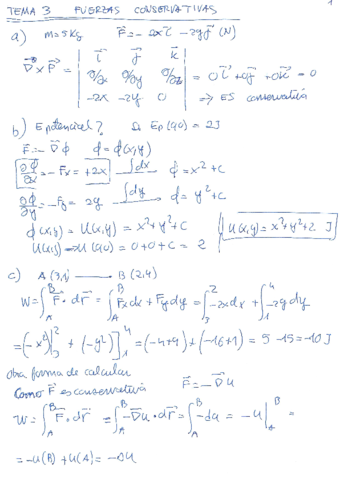 1
TEMA 3 FUERZAS CONSERVATIVAS
a) m=5kg F⃗=-2xi⃗ -2yj⃗ (N)
∇⃗×F⃗ = | i⃗ j⃗ k⃗ |
| ∂/∂x ∂/∂y ∂/∂z | = 0i⃗+0j⃗+0k⃗ = 0
| -2x -2y 0 | => ES conservativa
b) E potencial? Si Ep(0,0) = 2J
F⃗=-∇⃗φ φ=φ(x,y)
∂φ/∂x = -Fx = +2x ∫dx → φ=x²+C
∂φ/∂y = -Fy = 2y ∫dy → φ=y²+C
φ(x,y) = U(x,y) = x²+y²+C
U(x,y) → U(0,0) = 0+0+C = 2 U(x,y)=x²+y²+2 J
c) A(3,1) → B(2,4)
W=∫_A^B F⃗·dr⃗ = ∫_A^B Fxdx+Fydy = ∫_3^2 -2xdx + ∫_1^4 -2ydy
=(-x²)]_3^2 + (-y²)]_1^4 = (-4+9)+(-16+1) = 5-15=-10J
otra forma de calcular
Como F⃗ es conservativa F⃗=-∇⃗U
W=∫_A^B F⃗·dr⃗ = ∫_A^B -∇⃗U·dr⃗ = ∫_A^B -dU = -U|_A^B =
=-U(B)+U(A)=-ΔU